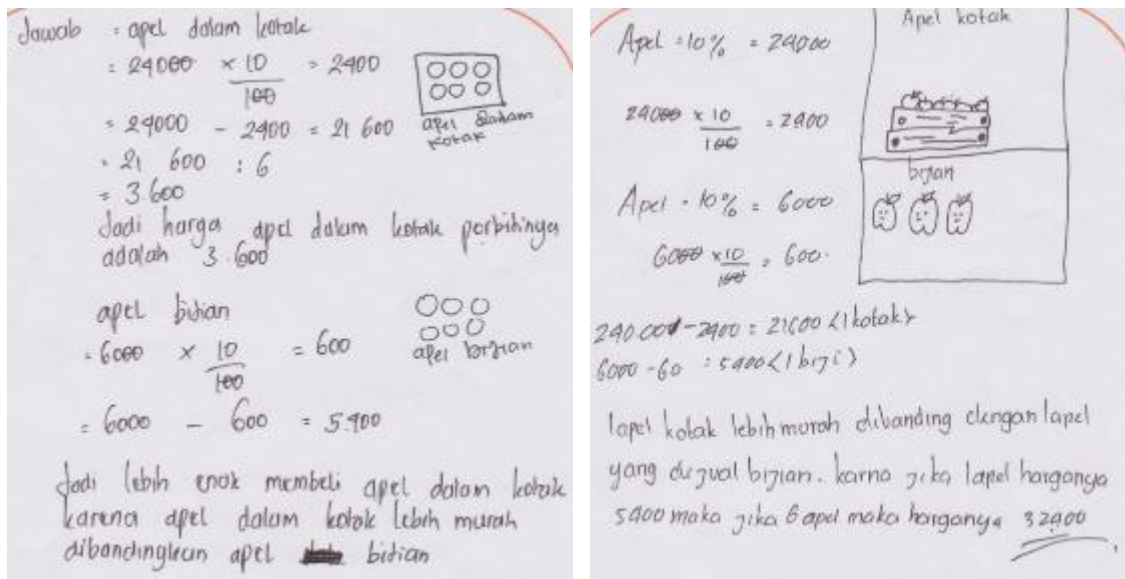 Jawab = apel dalam kotak
= 24000 × 10 / 100 = 2400
= 24000 - 2400 = 21 600
apel dadam
kotak
= 21 600 : 6
= 3.600
Jadi harga apel dalam kotak perbihinya
adalah 3.600
apel bidian
= 6000 × 10 / 100 = 600
apel brjian
= 6000 - 600 = 5.400
Jadi lebih enak membeli apel dalam kotak
karena apel dalam kotak lebih murah
dibandingkan apel bidian
Apel = 10% = 24000
24000 × 10 / 100 = 2400
Apel = 10% = 6000
6000 × 10 / 100 = 600.
Apel kotak
brjian
240.000 - 2400 = 21600 <1 kotak>
6000 - 60 = 5400 <1 briji>
1apel kotak lebih murah dibanding dengan 1apel
yang dijual brjian. karna jika 1apel harganya
5400 maka jika 6 apel maka harganya 32400